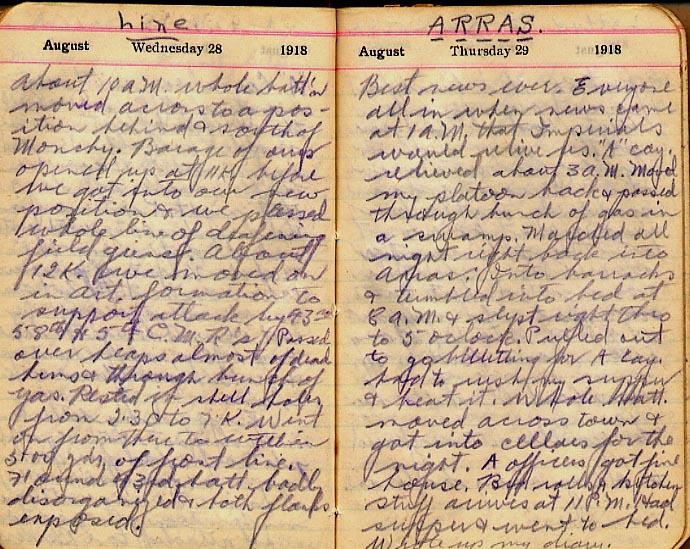 Line
August Wednesday 28 1918
about 10 a.M. whole batt'n
moved across to a pos-
ition behind & south of
Monchy. Barage of ours
opened up at 11K. before
we got into our new
position & we passed
whole line of
field guns. About
12K. we moved on
in Art. formation to
support attack by 43rd
58th & 5th C.M.R's. Passed
over heaps almost of dead
huns & through bunch of
gas. Rested in shell holes
from 2.30 to 7K. Went
on from there to within
500 yds of front line.
Found 43rd batt. badly
disorganized & both flanks
exposed.
ARRAS.
August Thursday 29 1918
Best news ever. Everyone
all in when news came
at 1 a.M. that Imperials
would relieve us. "A" coy.
relieved about 3 a.M. Moved
my platoon back & passed
through bunch of gas in
a swamp. Marched all
night right back into
Arras. Into barracks
& tumbled into bed at
8 a.M. & slept right thro
to 5 oclock. Pulled out
to go billetting for A coy.
had to rush my supper
& beat it. Whole batt.
moved across town &
got into cellars for the
night. A officers got fine
house. Bed rolls & kitchen
stuff arrives at 11 P.M. Had
supper & went to bed.
Wrote up my diary.